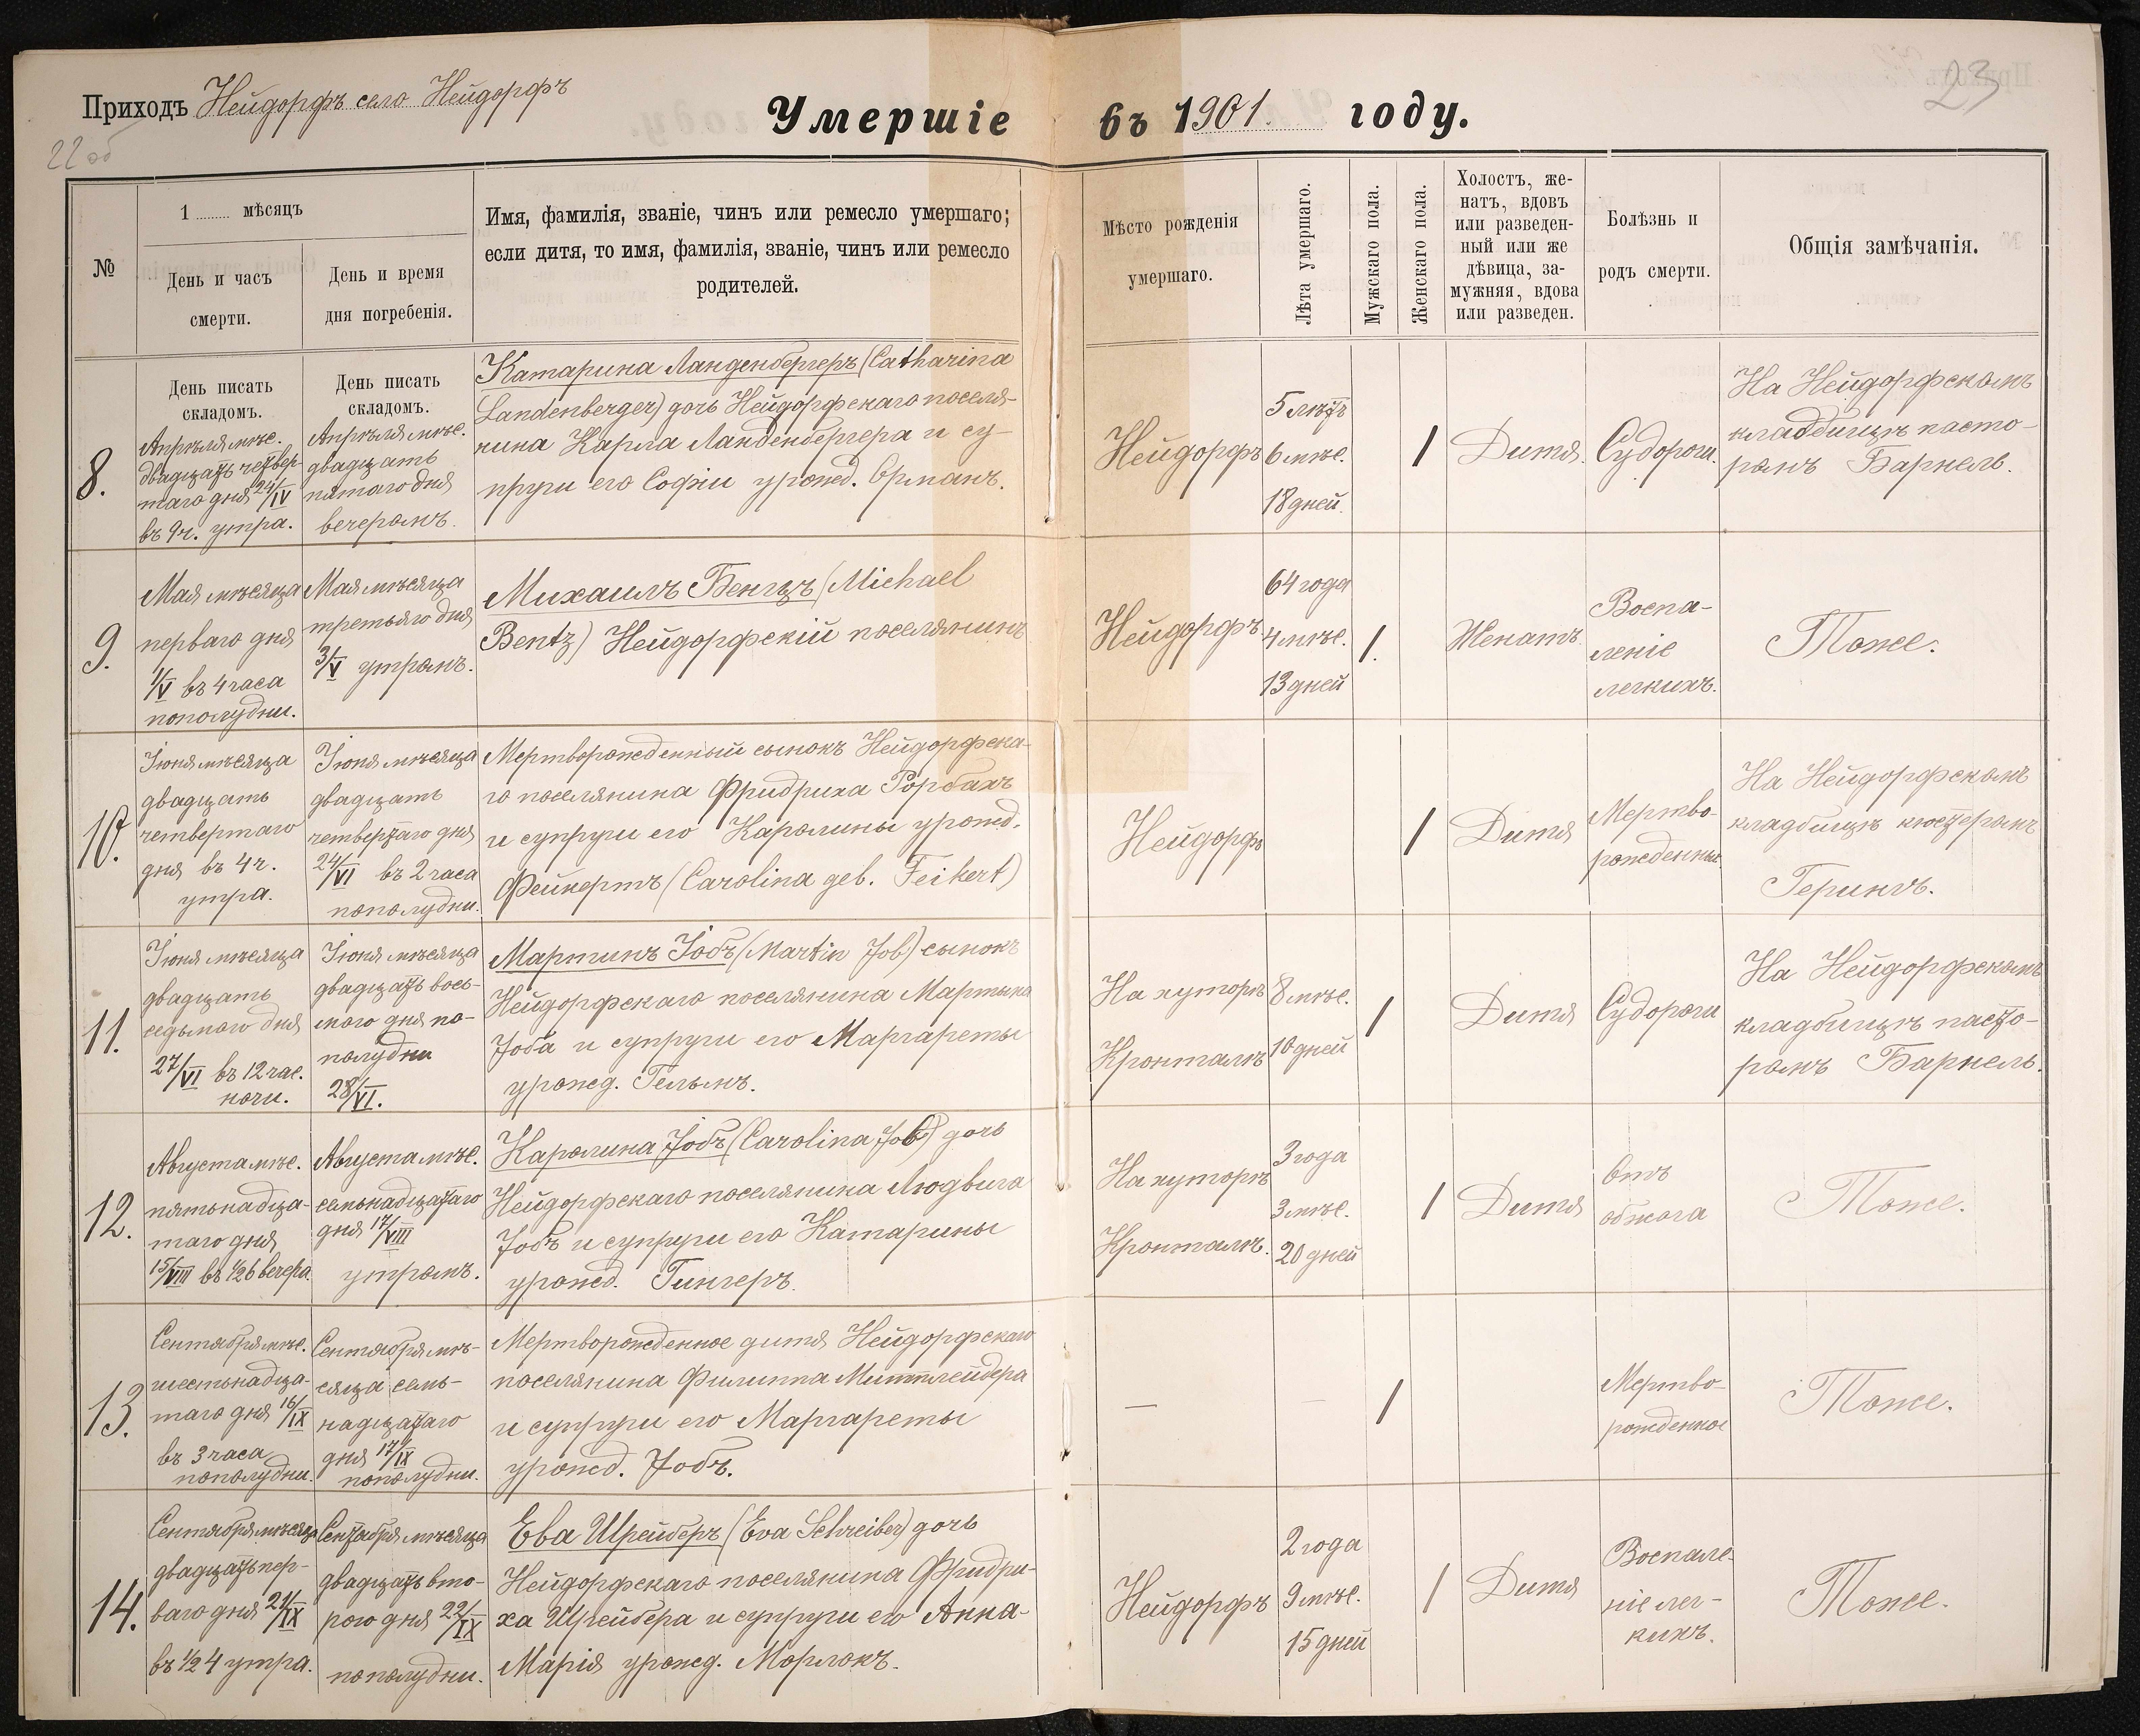 Приходъ Нейдорфъ село Нейдорфъ
22 об
23
Умершіе въ 1901. году.
№
1 ........ мѣсяцъ
День и часъ
смерти.
День и время
дня погребенія.
Имя, фамилія, званіе, чинъ или ремесло умершаго;
если дитя, то имя, фамилія, званіе, чинъ или ремесло
родителей.
Мѣсто рожденія
умершаго.
Лѣта умершаго.
Мужскаго пола.
Женскаго пола.
Холостъ, же-
натъ, вдовъ
или разведен-
ный или же
дѣвица, за-
мужняя, вдова
или разведен.
Болѣзнь и
родъ смерти.
Общія замѣчанія.
День писать
складомъ.
День писать
складомъ.
8.
Апрѣля мѣс.
двадцать четвер-
таго дня 24/IV
въ 9 ч. утра.
Апрѣля мѣс.
двадцать
пятаго дня
вечеромъ.
Катарина Ланденбергеръ (Catharina
Landenberger) дочь Нейдорфскаго поселя-
нина Карла Ланденбергера и су-
пруги его Софіи урожд. Орманъ.
Нейдорфъ
5 лѣтъ
6 мѣс.
18 дней.
1
Дитя.
Судороги.
На Нейдорфскомъ
кладбищѣ пасто-
ромъ Барнель.
9.
Мая мѣсяца
перваго дня
1/V въ 4 часа
пополудни.
Мая мѣсяца
третьяго дня
3/V утромъ.
Михаилъ Бенцъ (Michael
Bentz) Нейдорфскій поселянинъ
Нейдорфъ
64 года
4 мѣс.
13 дней
1.
Женатъ
Воспа-
леніе
легкихъ.
Тоже.
10.
Іюня мѣсяца
двадцать
четвертаго
дня въ 4 ч.
утра.
Іюня мѣсяца
двадцать
четвертаго дня
24/VI въ 2 часа
пополудни.
Мертворожденный сынокъ Нейдорфска-
го поселянина Фридриха Рорбахъ
и супруги его Каролины урожд.
Фейкертъ (Carolina geb. Feikert)
Нейдорфъ
1
Дитя
Мертво-
рожденный
На Нейдорфскомъ
кладбищѣ кюстеромъ
Герингъ.
11.
Іюня мѣсяца
двадцать
седьмого дня
27/VI въ 12 час.
ночи.
Іюня мѣсяца
двадцать вось-
мого дня по-
полудни
28/VI.
Мартинъ Іобъ (Martin Job) сынокъ
Нейдорфскаго поселянина Мартына
Іоба и супруги его Маргареты
урожд. Гельмъ.
На хуторѣ
Кронталѣ
8 мѣс.
10 дней
1
Дитя
Судороги
На Нейдорфскомъ
кладбищѣ пасто-
ромъ Барнель.
12.
Августа мѣс.
пятьнадца-
таго дня
15/VIII въ 1/2 6 вечера.
Августа мѣс.
семьнадцатаго
дня 17/VIII
утромъ.
Каролина Іобъ (Carolina Job) дочь
Нейдорфскаго поселянина Людвига
Іобъ и супруги его Катарины
урожд. Гингеръ.
На хуторѣ
Кронталѣ.
3 года
3 мѣс.
20 дней
1
Дитя
Отъ
обжога
Тоже.
13.
Сентября мѣс.
шестьнадца-
таго дня 16/IX
въ 3 часа
пополудни.
Сентября мѣ-
сяца семь-
надцатаго
дня 17/IX
пополудни.
Мертворожденное дитя Нейдорфскаго
поселянина Филиппа Миттлейдера
и супруги его Маргареты
урожд. Іобъ.
—
—
1
Мертво-
рожденное
Тоже.
14.
Сентября мѣсяца
двадцать пер-
ваго дня 21/IX
въ 1/2 4 утра.
Сентября мѣсяца
двадцать вто-
рого дня 22/IX
пополудни.
Ева Шрейберъ (Eva Schreiber) дочь
Нейдорфскаго поселянина Фридри-
ха Шрейбера и супруги его Анна-
Марія урожд. Морлокъ.
Нейдорфъ
2 года
9 мѣс.
15 дней
1
Дитя
Воспале-
ніе лег-
кихъ.
Тоже.